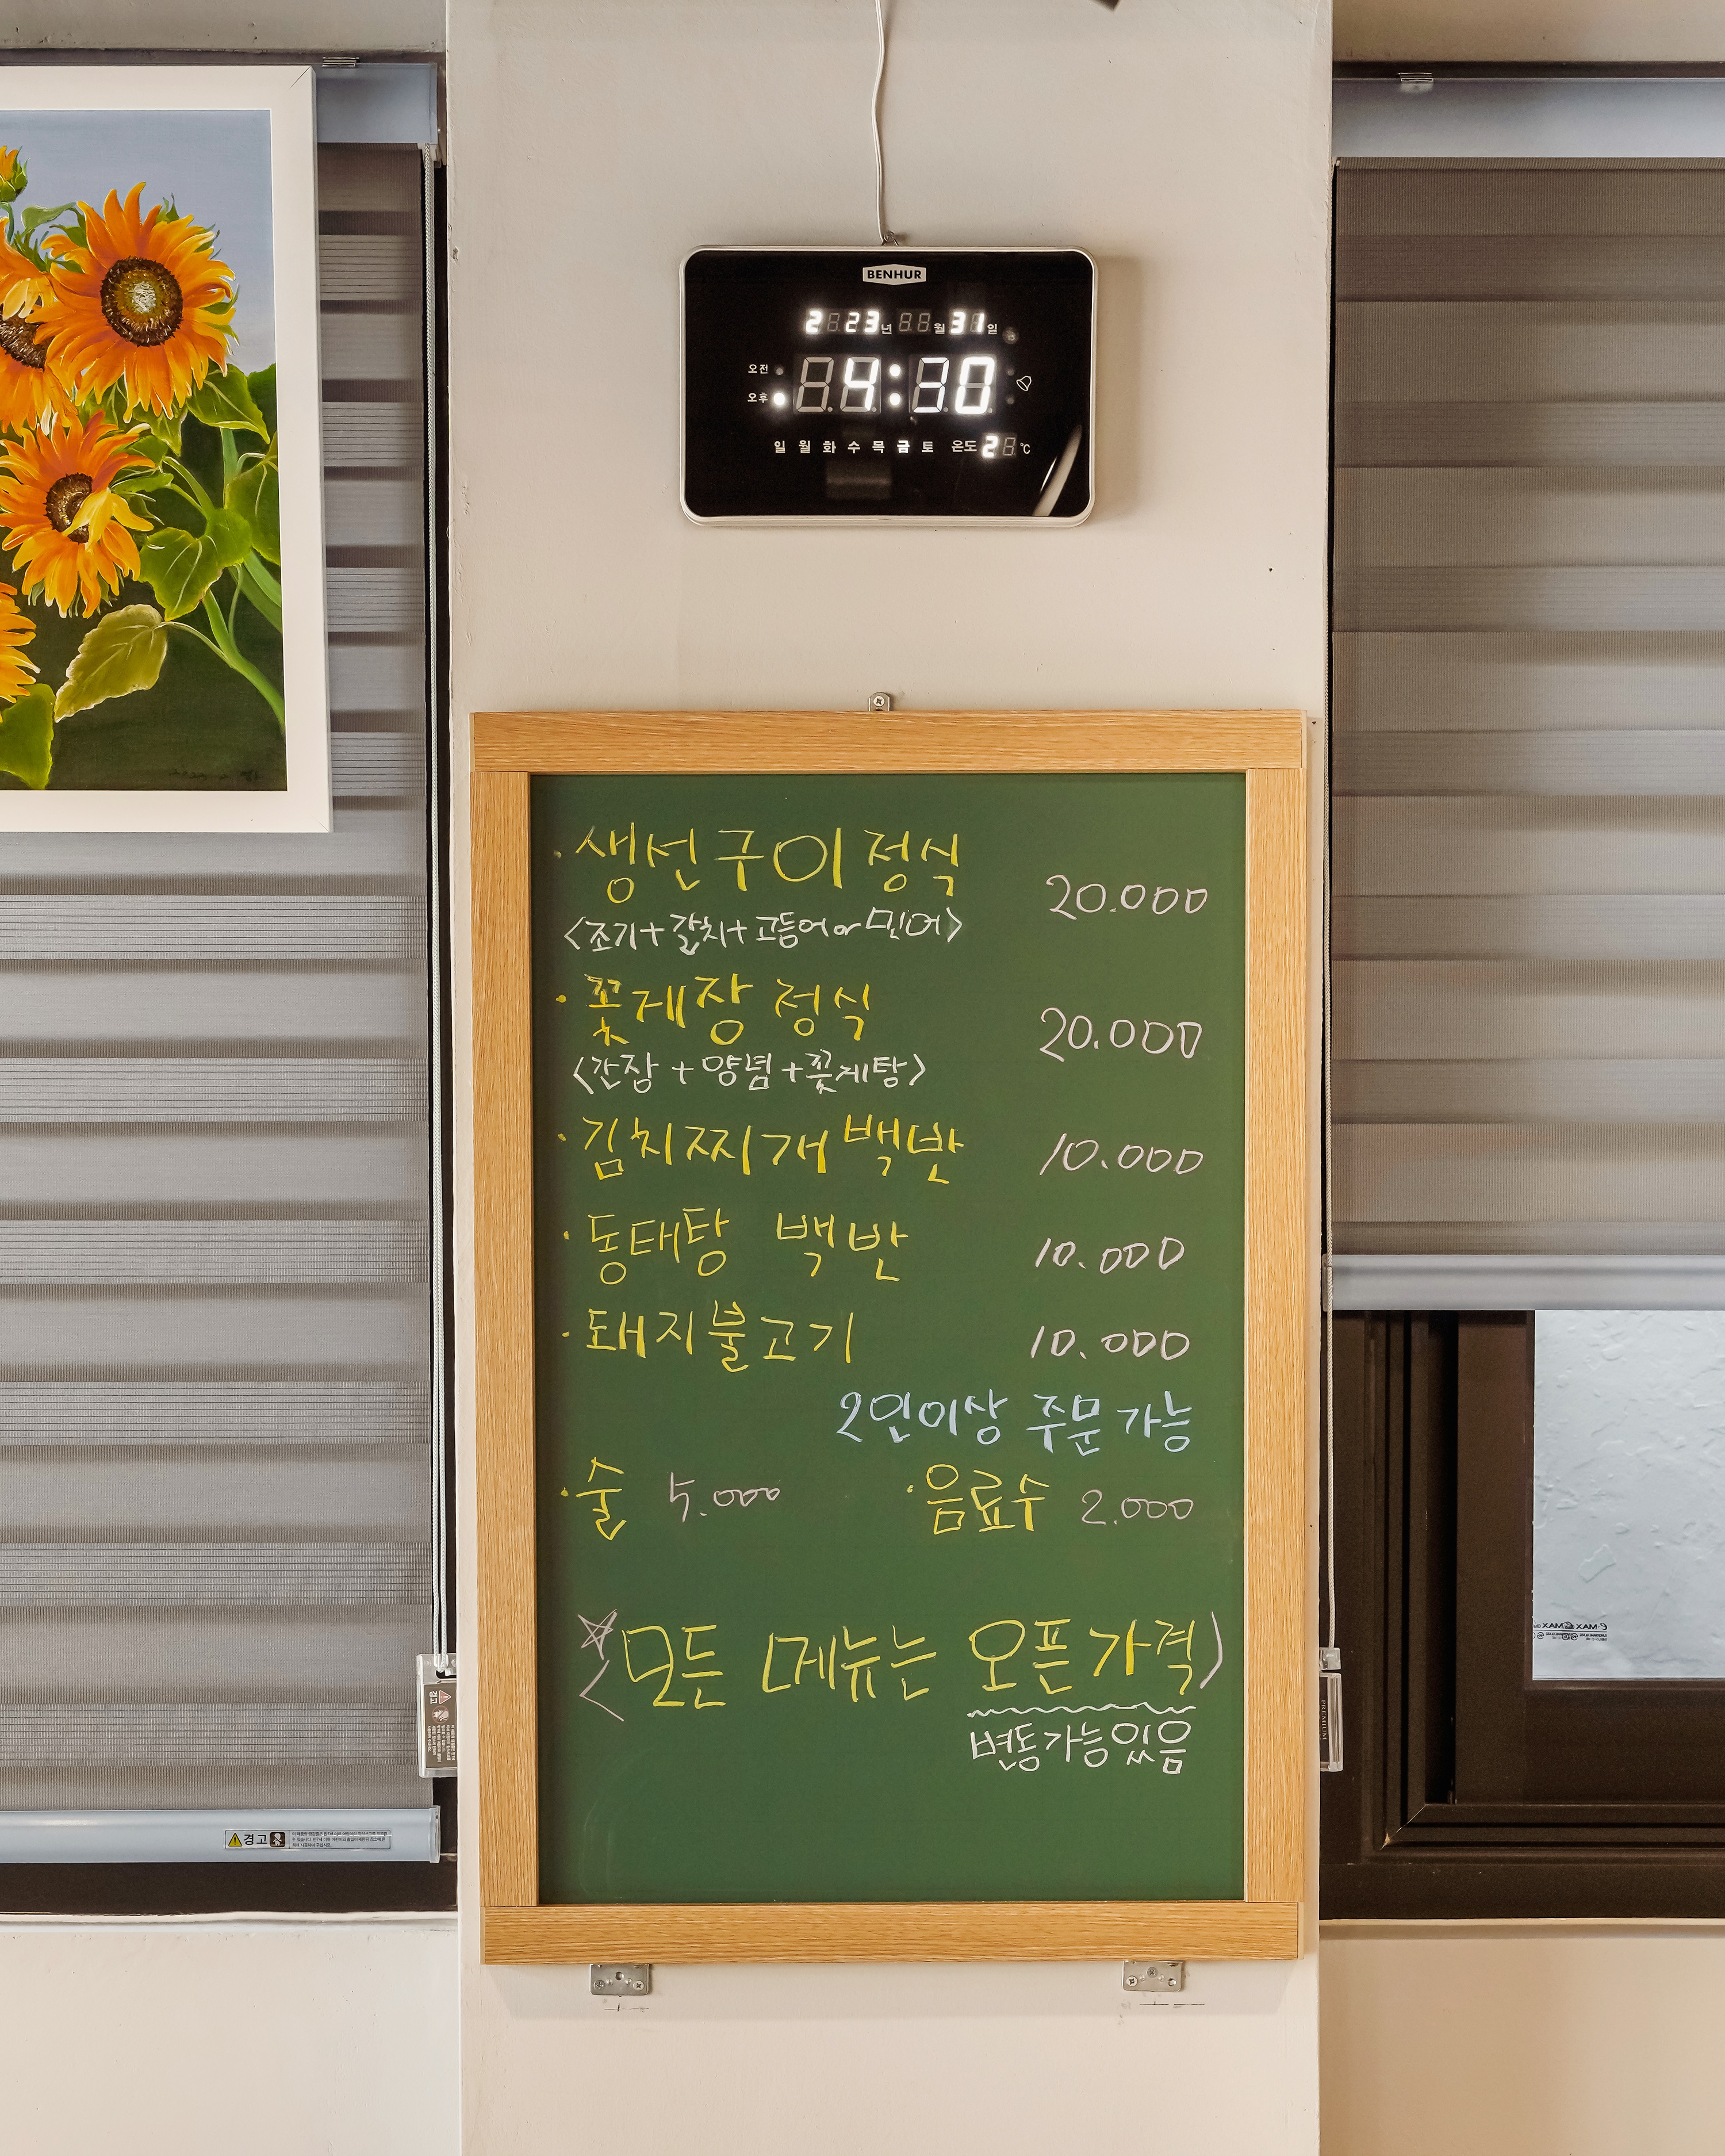 BENHUR
2 23년 월 31일
오전
4:30
오후
일 월 화 수 목 금 토 온도 2 ℃
· 생선구이 정식 20.000
<조기+갈치+고등어or민어>
· 꽃게장 정식 20.000
<간장 + 양념 + 꽃게탕>
· 김치찌개 백반 10.000
· 동태탕 백반 10.000
· 돼지불고기 10.000
2인이상 주문 가능
· 술 5.000 · 음료수 2.000
☆
<모든 메뉴는 오픈가격>
변동가능있음
경고
경고
PREMIUM